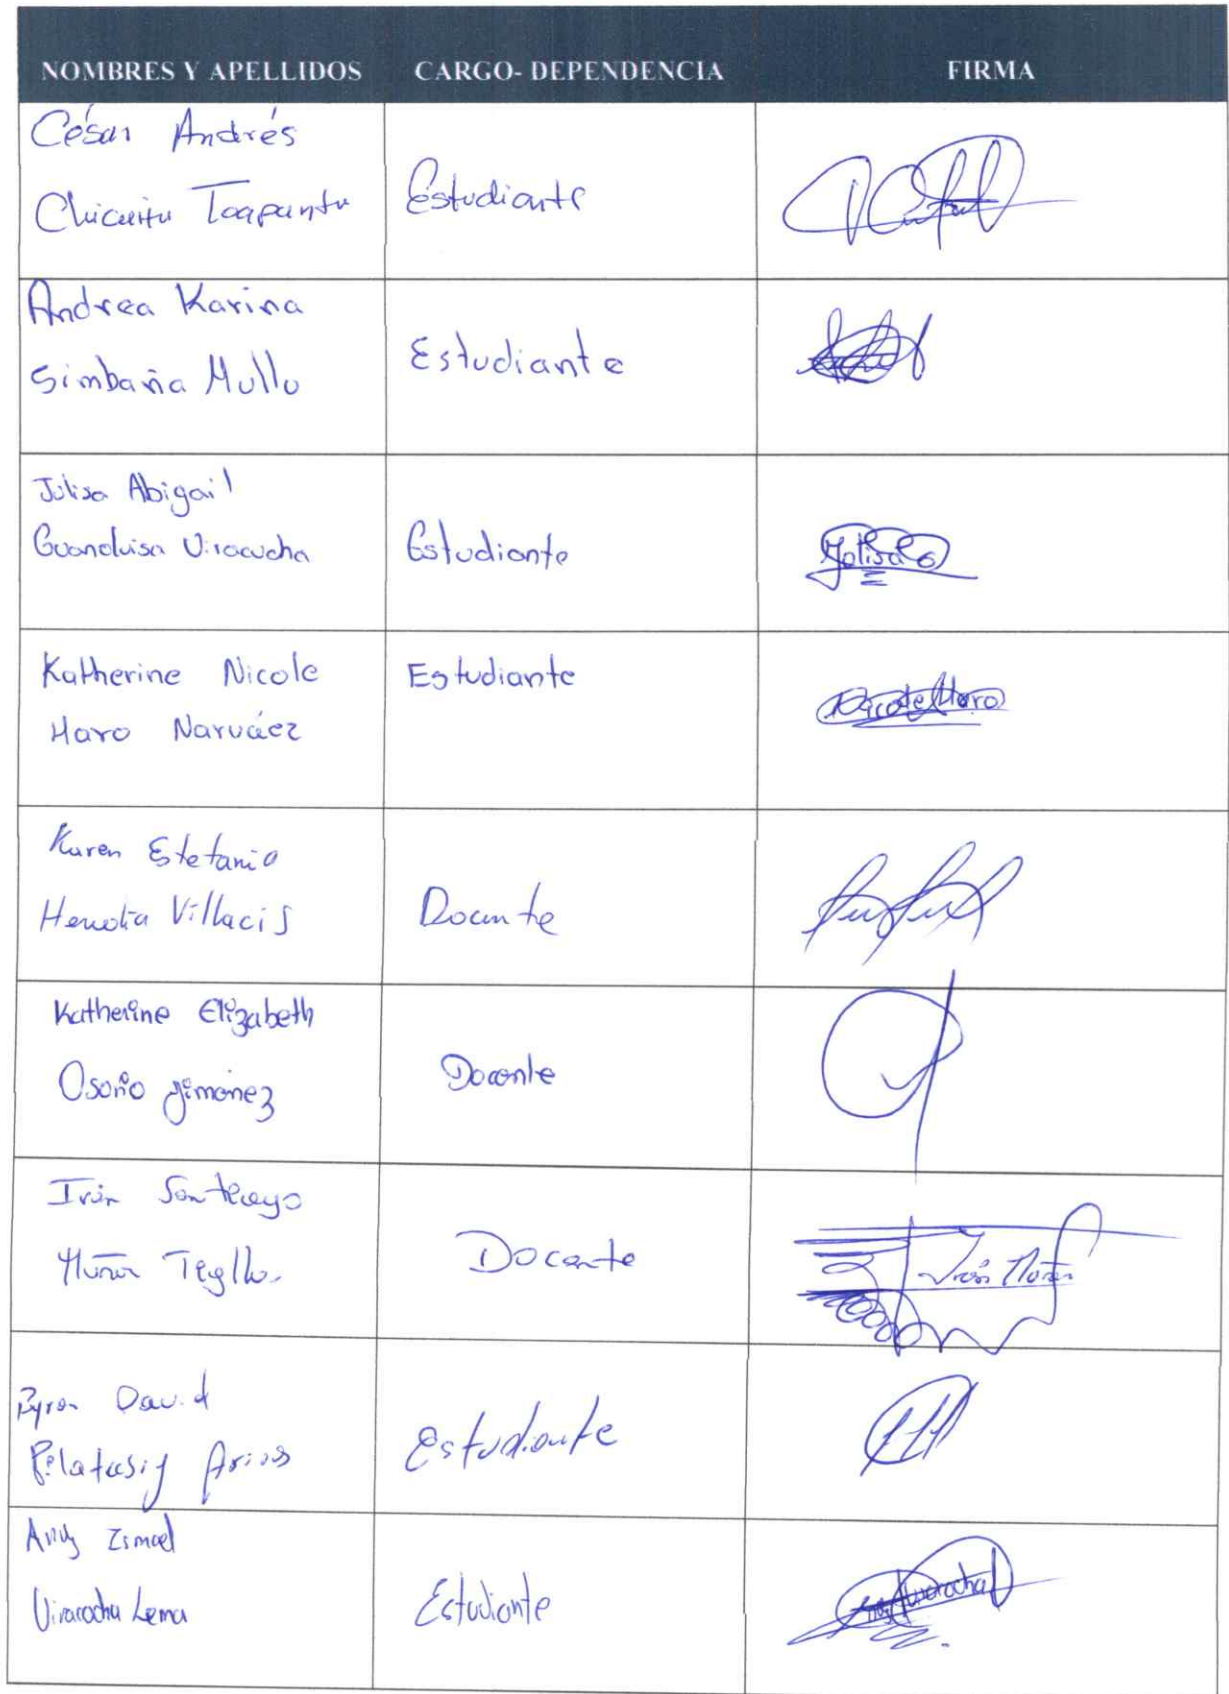 NOMBRES Y APELLIDOS CARGO- DEPENDENCIA FIRMA
César Andrés
Chicaiza Toapanta Estudiante
Andrea Karina
Simbaña Mullo Estudiante
Julisa Abigail
Guanoluisa Viracucha Estudiante Yolisa G
Katherine Nicole Estudiante
Haro Narváez Nicole Haro
Karen Estefania
Heredia Villacis Docente
Katherine Elizabeth
Osorio Jimenez Docente
Iván Santiago
Docente Iván
Byron David
Pilatasig Arias Estudiante
Andy Ismael
Viracocha Lema Estudiante Viracocha